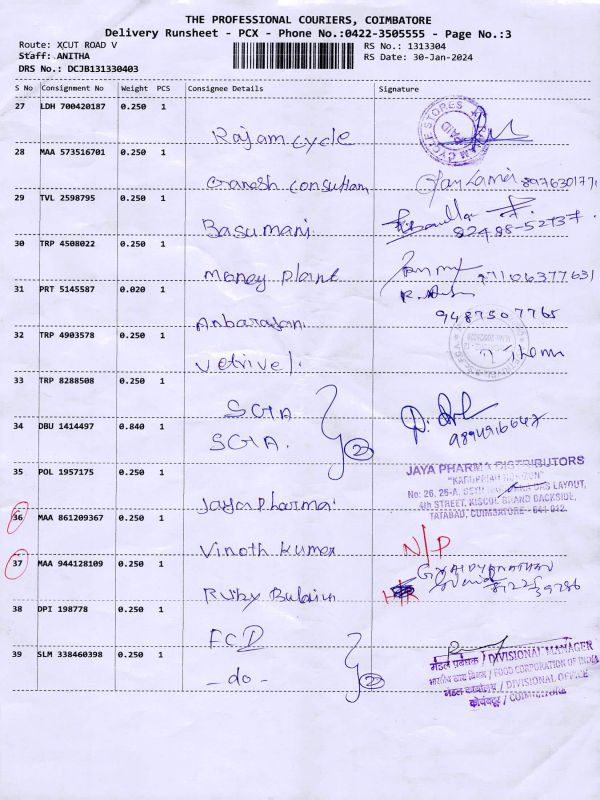 THE PROFESSIONAL COURIERS, COIMBATORE
Delivery Runsheet - PCX - Phone No.:0422-3505555 - Page No.:3
Route: XCUT ROAD V
RS No.: 1313304
Staff: ANITHA
RS Date: 30-Jan-2024
DRS No.: DCJB131330403
S No Consignment No Weight PCS Consignee Details Signature
27 LDH 700420187 0.250 1
Rajam cycle
28 MAA 573516701 0.250 1
Ganesh Consultam 8976301771
29 TVL 2598795 0.250 1
Basumani 82488-52737
30 TRP 4508022 0.250 1
Money plant 97106377631
31 PRT 5145587 0.020 1
Anbarasan 9487507765
32 TRP 4903578 0.250 1
Vetrivel.
33 TRP 8288508 0.250 1
SGIA
34 DBU 1414497 0.840 1
SGIA. 2
35 POL 1957175 0.250 1
JAYA PHARMA DISTRIBUTORS
4th STREET, KISCOL GRAND BACKSIDE,
TATABAD, COIMBATORE - 641 012.
Jaya Pharma
36 MAA 861209367 0.250 1
Vinoth Kumar N/P
37 MAA 944128109 0.250 1
Ruby
38 DPI 198778 0.250 1
FCI
39 SLM 338460398 0.250 1
- do - 2
मंडल प्रबंधक / DIVISIONAL MANAGER
भारतीय खाद्य निगम / FOOD CORPORATION OF INDIA
मंडल कार्यालय / DIVISIONAL OFFICE
कोयंबत्तूर / COIMBATORE